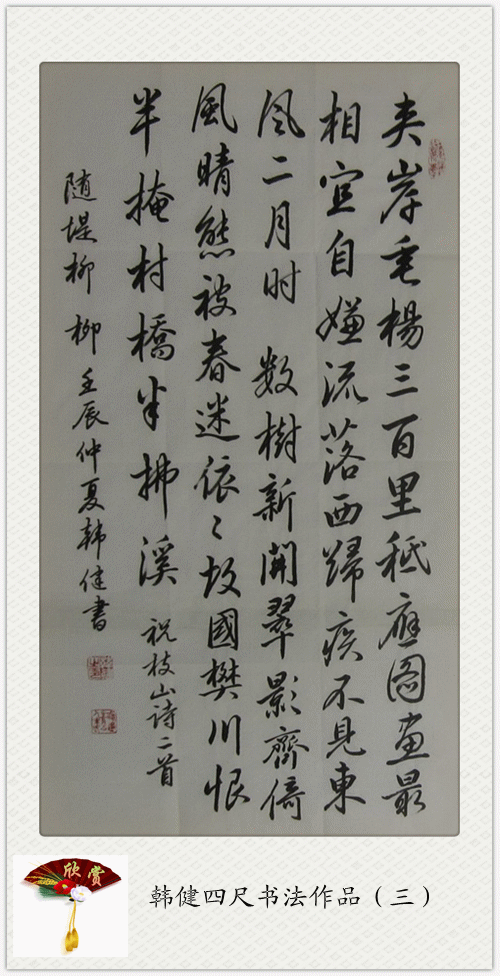 夹岸垂楊三百里祗應图画最
相宜自嫌流落西歸疾不見東
风二月时 数樹新開翠影齊倚
風晴態被春迷依〻故國樊川恨
半掩村橋半拂溪 祝枝山诗二首
随堤柳 柳 壬辰仲夏韩健書
欣赏
韩健四尺书法作品（三）